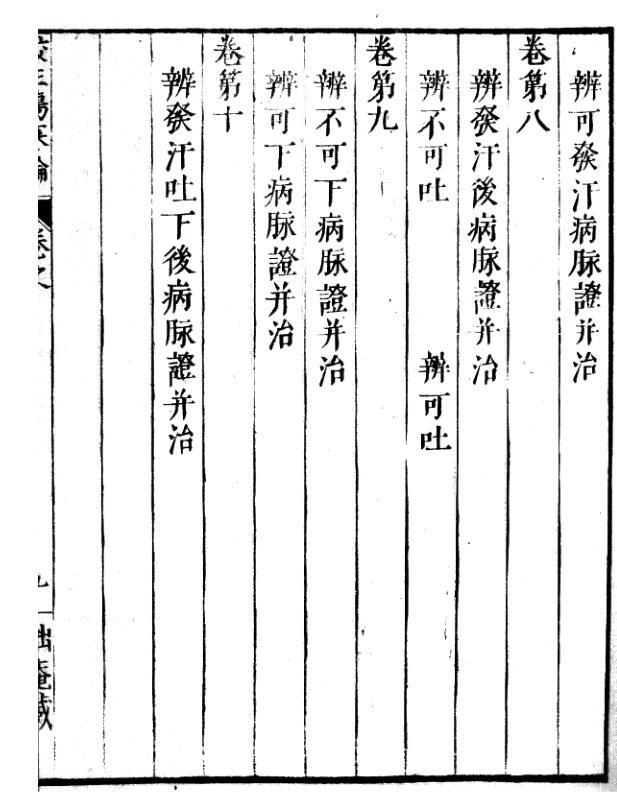 辨可發汗病脉證并治
卷第八
辨發汗後病脉證并治
辨不可吐　辨可吐
卷第九
辨不可下病脉證并治
辨可下病脉證并治
卷第十
辨發汗吐下後病脉證并治